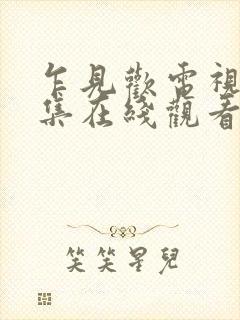 乍見歡電視
集在綫觀看
笑笑星兒